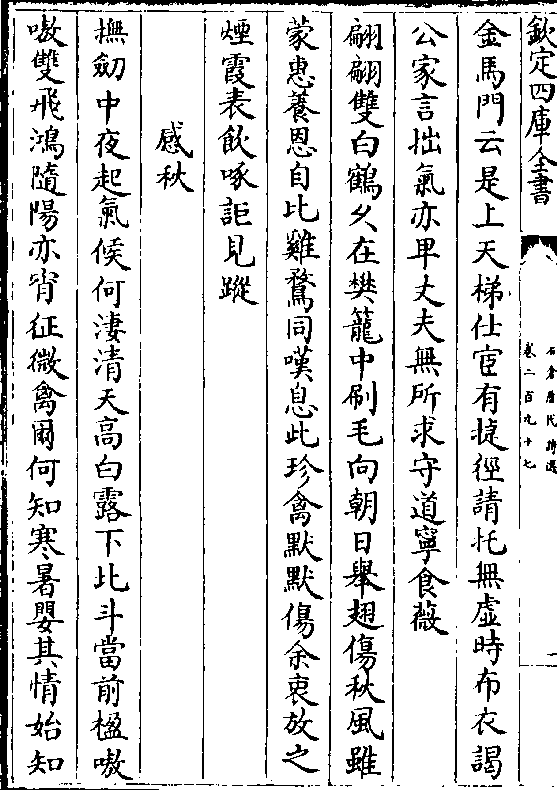 欽定四庫全書
石倉歷代詩選
卷二百九十七
金馬門云是上天梯仕宦有捷徑請托無虛時布衣謁
公家言拙氣亦卑丈夫無所求守道寧食薇
翩翩雙白鶴久在樊籠中刷毛向朝日舉翅傷秋風雖
蒙惠養恩自比雞鶩同嘆息此珍禽默默傷余衷放之
煙霞表飲啄詎見蹤
感秋
撫劒中夜起氣候何淒清天高白露下北斗當前楹嗷
嗷雙飛鴻隨陽亦宵征微禽爾何知寒暑嬰其情始知